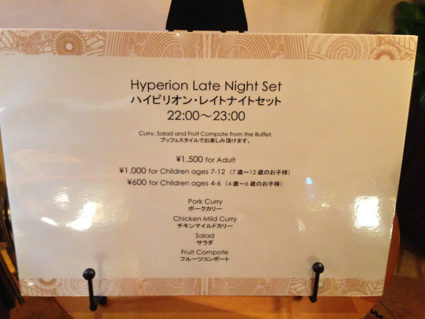 Hyperion Late Night Set
ハイピリオン・レイトナイトセット
22:00～23:00
Curry, Salad and Fruit Compote from the Buffet.
ブッフェスタイルでお楽しみ頂けます。
¥1,500 for Adult
¥1,000 for Children ages 7-12 （7歳～12歳のお子様）
¥600 for Children ages 4-6 （4歳～6歳のお子様）
Pork Curry
ポークカリー
Chicken Mild Curry
チキンマイルドカリー
Salad
サラダ
Fruit Compote
フルーツコンポート